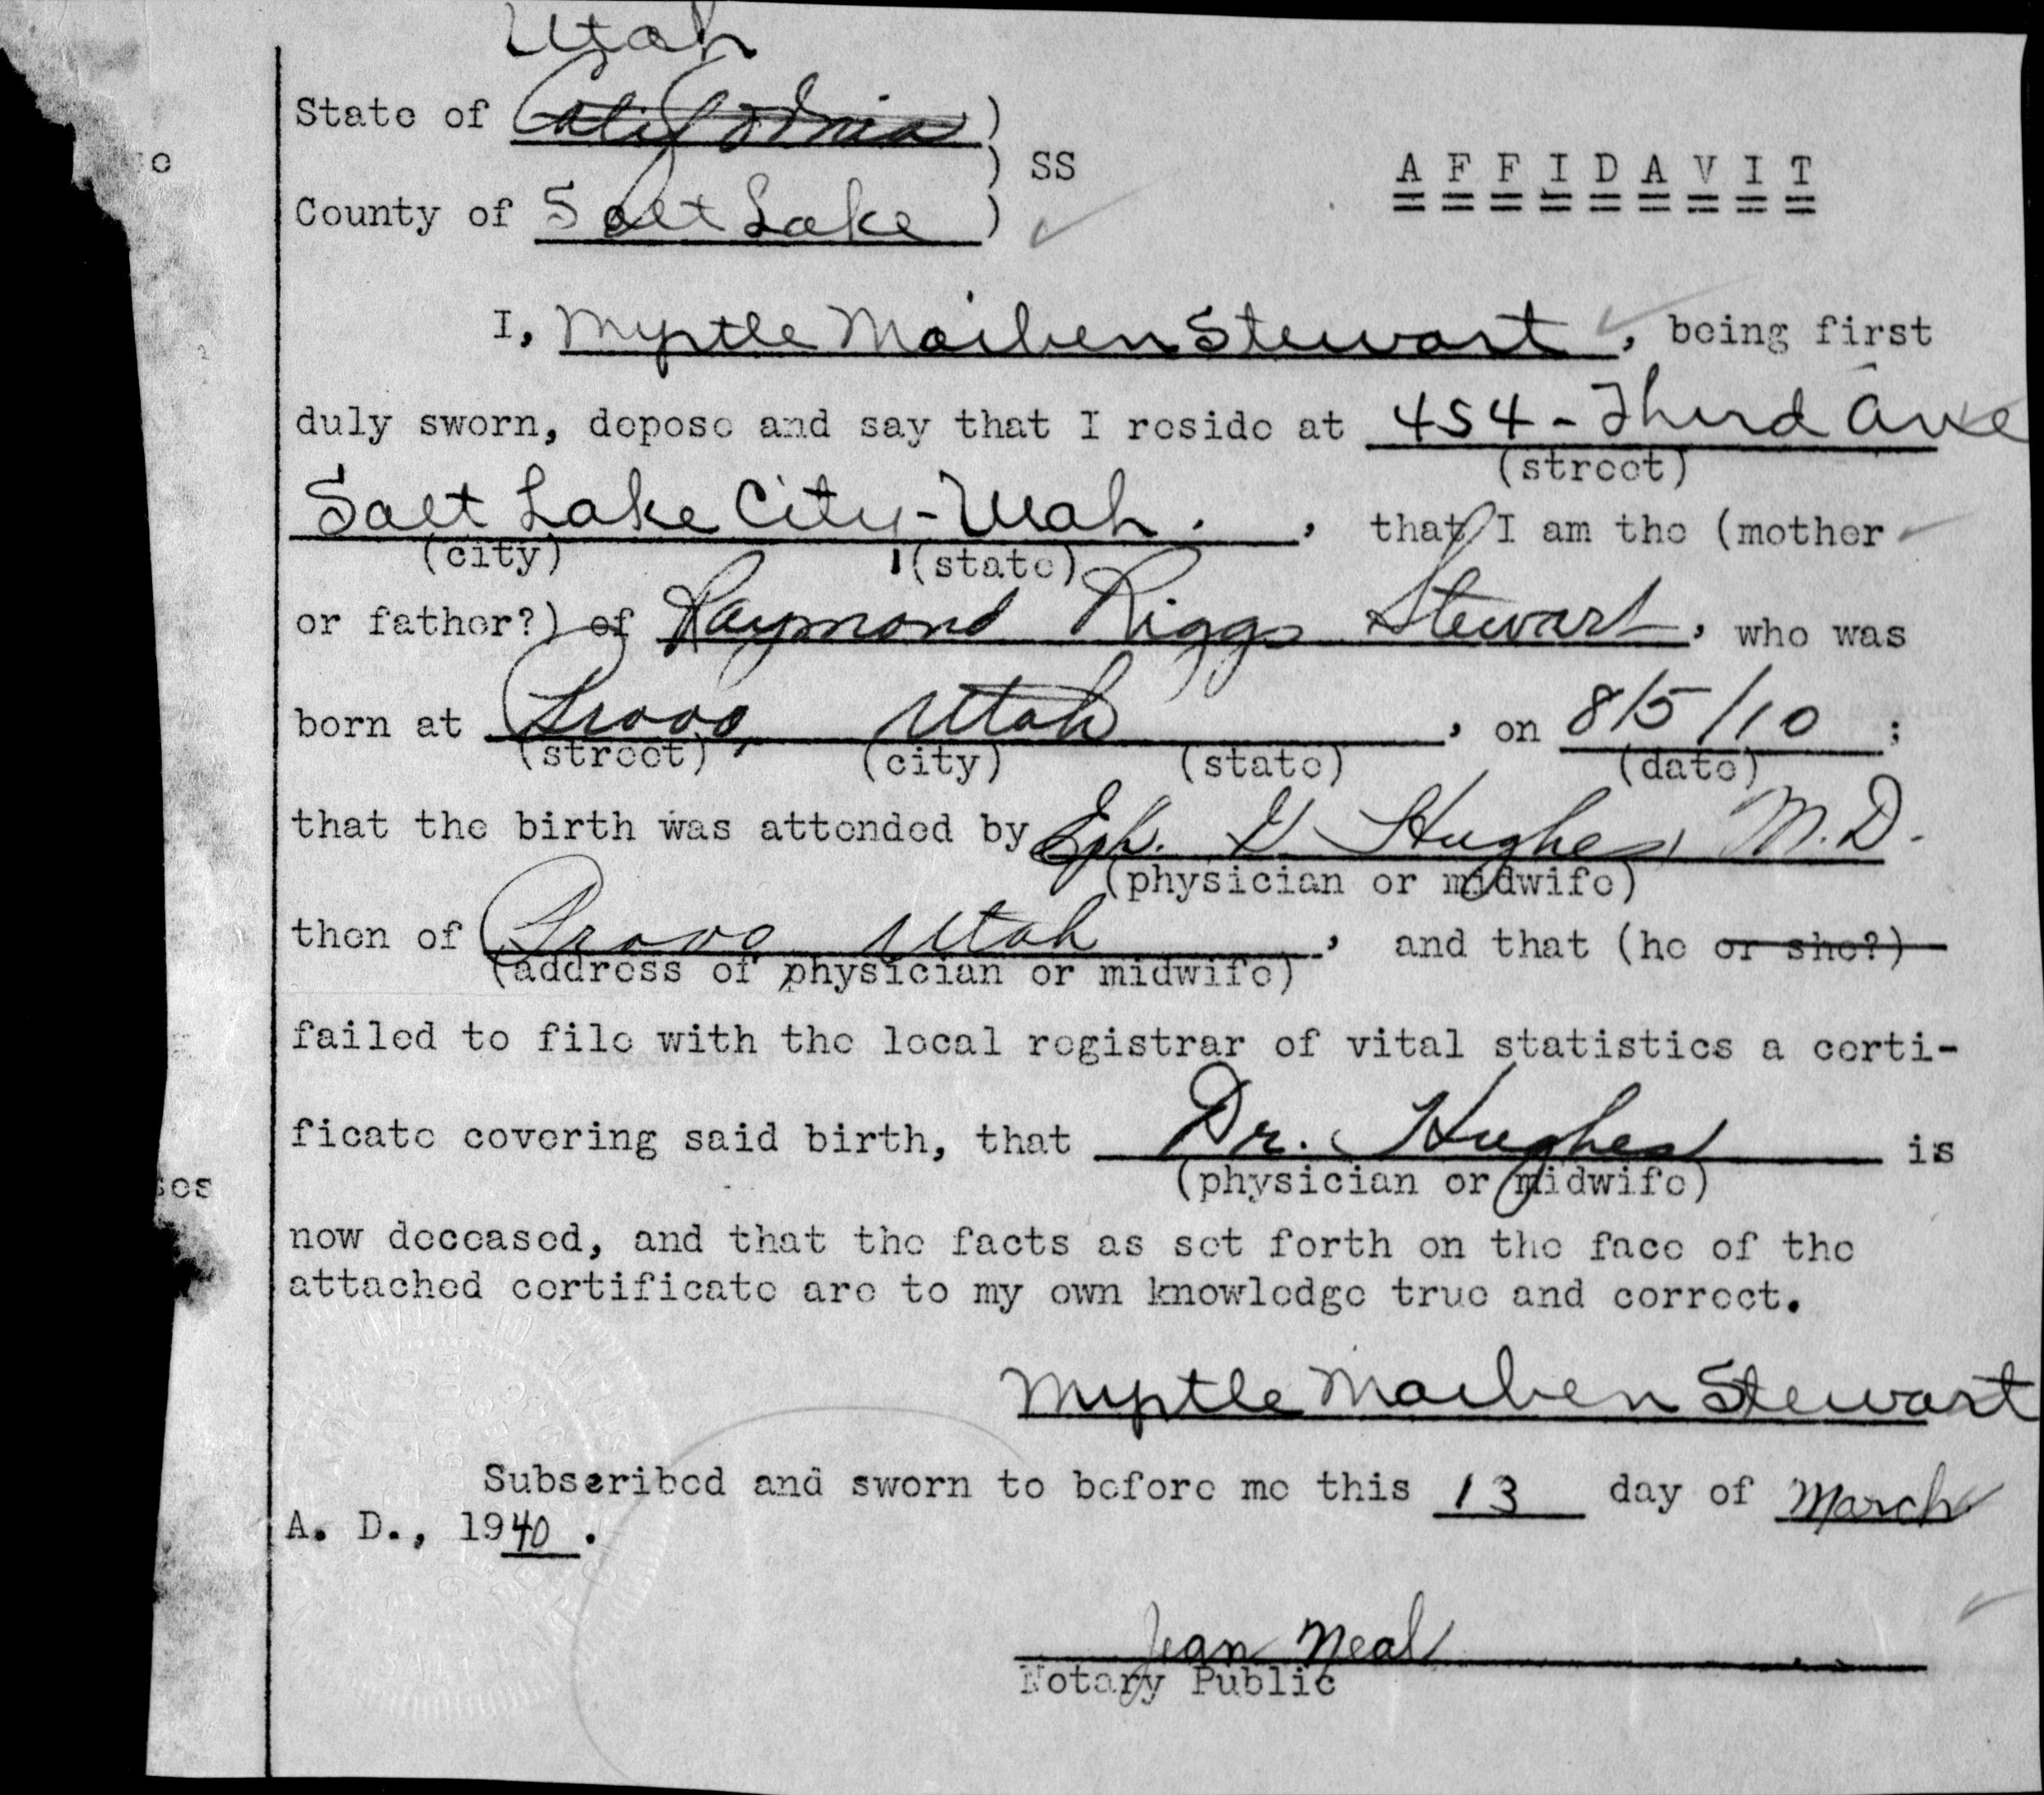 Utah
State of California )
) SS
County of Salt Lake )
AFFIDAVIT
I, Myrtle Maiben Stewart, being first
duly sworn, depose and say that I reside at 454 - Third Ave
(street)
Salt Lake City - Utah. , that I am the (mother
(city) (state)
or father?) of Raymond Riggs Stewart, who was
born at Provo, Utah , on 8/5/10 ;
(street) (city) (state) (date)
that the birth was attended by Eph. G Hughes, M.D.
(physician or midwife)
then of Provo Utah , and that (he or she?)
(address of physician or midwife)
failed to file with the local registrar of vital statistics a certi-
ficate covering said birth, that Dr. Hughes is
(physician or midwife)
now deceased, and that the facts as set forth on the face of the
attached certificate are to my own knowledge true and correct.
Myrtle Maiben Stewart
Subscribed and sworn to before me this 13 day of March
A. D., 1940 .
Jean Neal
Notary Public